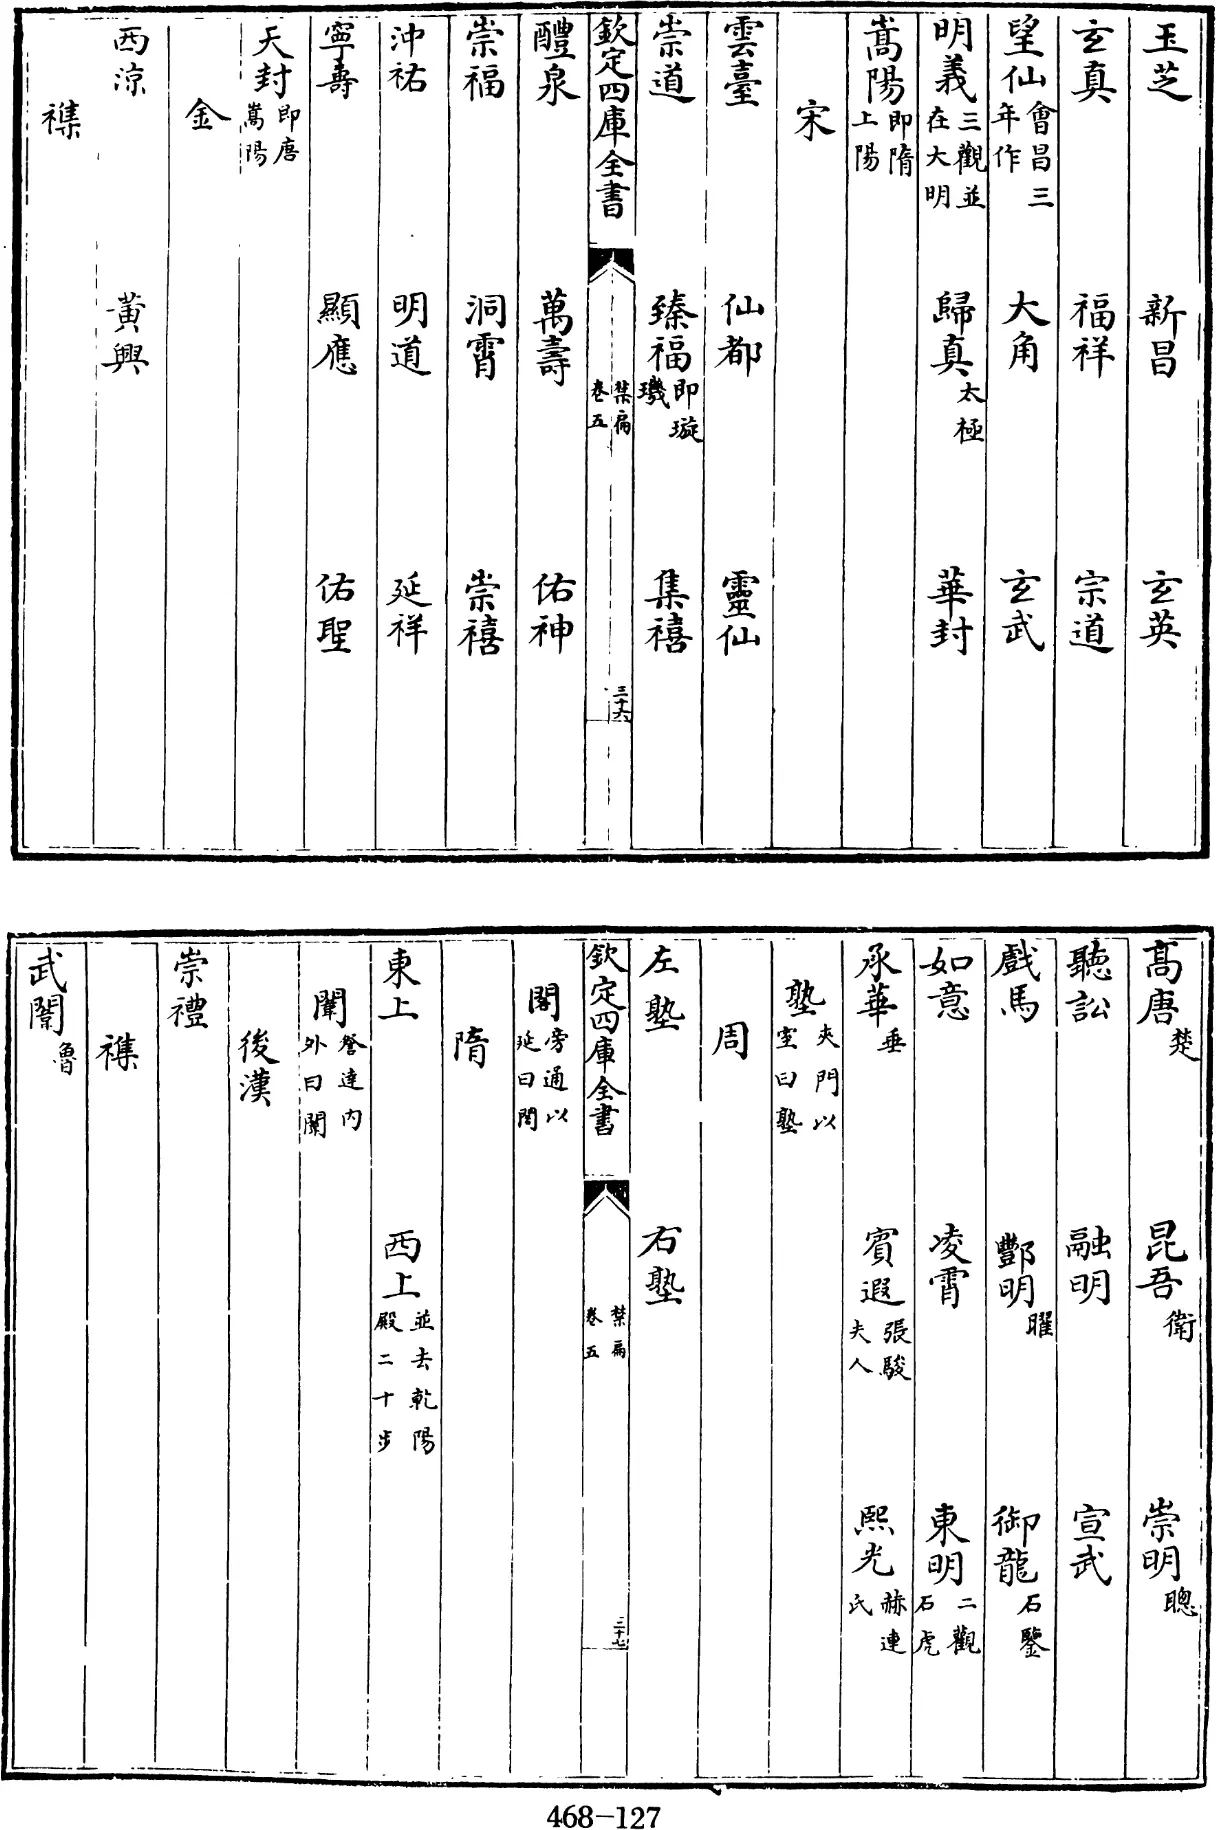 玉芝 新昌 玄英
玄真 福祥 宗道
望仙會昌三年作 大角 玄武
明義三觀並在大明 歸真太極 華封
嵩陽即隋上陽
宋
雲臺 仙都 靈仙
崇道 臻福即璇璣 集禧
欽定四庫全書 禁扁卷五 三十六
醴泉 萬壽 佑神
崇福 洞霄 崇禧
沖祐 明道 延祥
寧壽 顯應 佑聖
天封即唐嵩陽
金
西涼 黃興
襍
高唐楚 昆吾衛 崇明聰
聽訟 融明 宣武
戲馬 酆明曜 御龍石鑒
如意 凌霄 東明二觀石虎
承華垂 賓遐張駿夫人 熙光赫連氏
塾夾門以室曰塾
周
左塾 右塾
欽定四庫全書 禁扁卷五 三十七
閣旁通以延曰閣
隋
東上 西上並去乾陽殿二十步
闈啓達內外曰闈
後漢
崇禮
襍
武闈魯
468-127